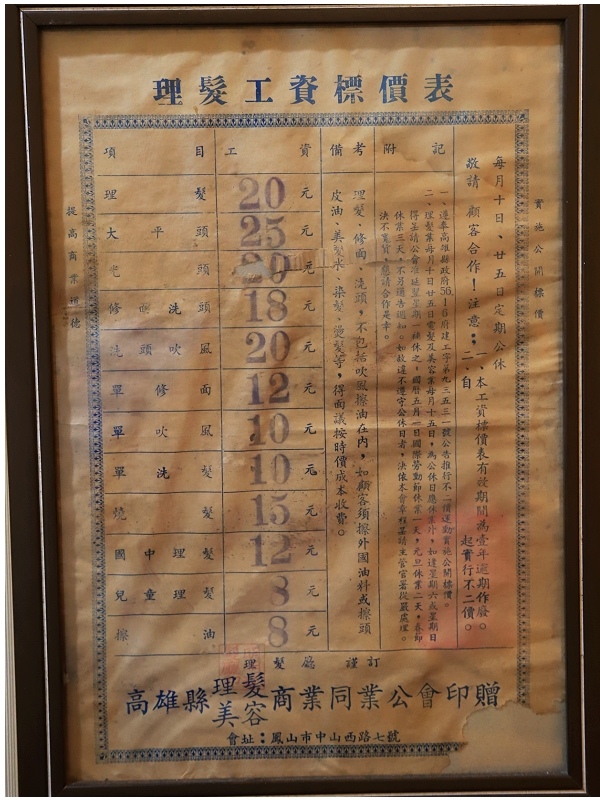 理髮工資標價表
實施公開標價
提高商業道德
每月十日、廿五日定期公休
敬請 顧客合作！注意：一、本工資標價表有效期間為壹年逾期作廢。
二、自 起實行不二價。
附記
一、遵奉高雄縣政府56.1.6府建工字第九三五三一號公告推行不二價運動實施公開標價。
二、理髮業每月十日廿五日電髮及美容業每月十五日，為公休日應休業外，如逢星期六或星期日
得呈請公會准延至星期一補休之，國曆五月一日國際勞動節休業一天，元旦休業二天，春節
休業三天，不另通告週知。如故違不遵守公休日者，決依本會章程呈請主管官署從嚴處理。
決不寬貸，懇請合作是幸。
備考
理髮、修面、洗頭，不包括吹風擦油在內，如顧客須擦外國油料或擦頭
皮油、美髮水、染髮、燙髮等，得面議按時價成本收費。
項目 工資
理髮 20元
大平頭 25元
光頭 20元
修面洗頭 18元
洗頭吹風 20元
單修面 12元
單吹風 10元
單洗髮 10元
燒髮 15元
國中理髮 12元
兒童理髮 8元
擦油 8元
理髮廳 謹訂
高雄縣理髮美容商業同業公會印贈
會址：鳳山市中山西路七號